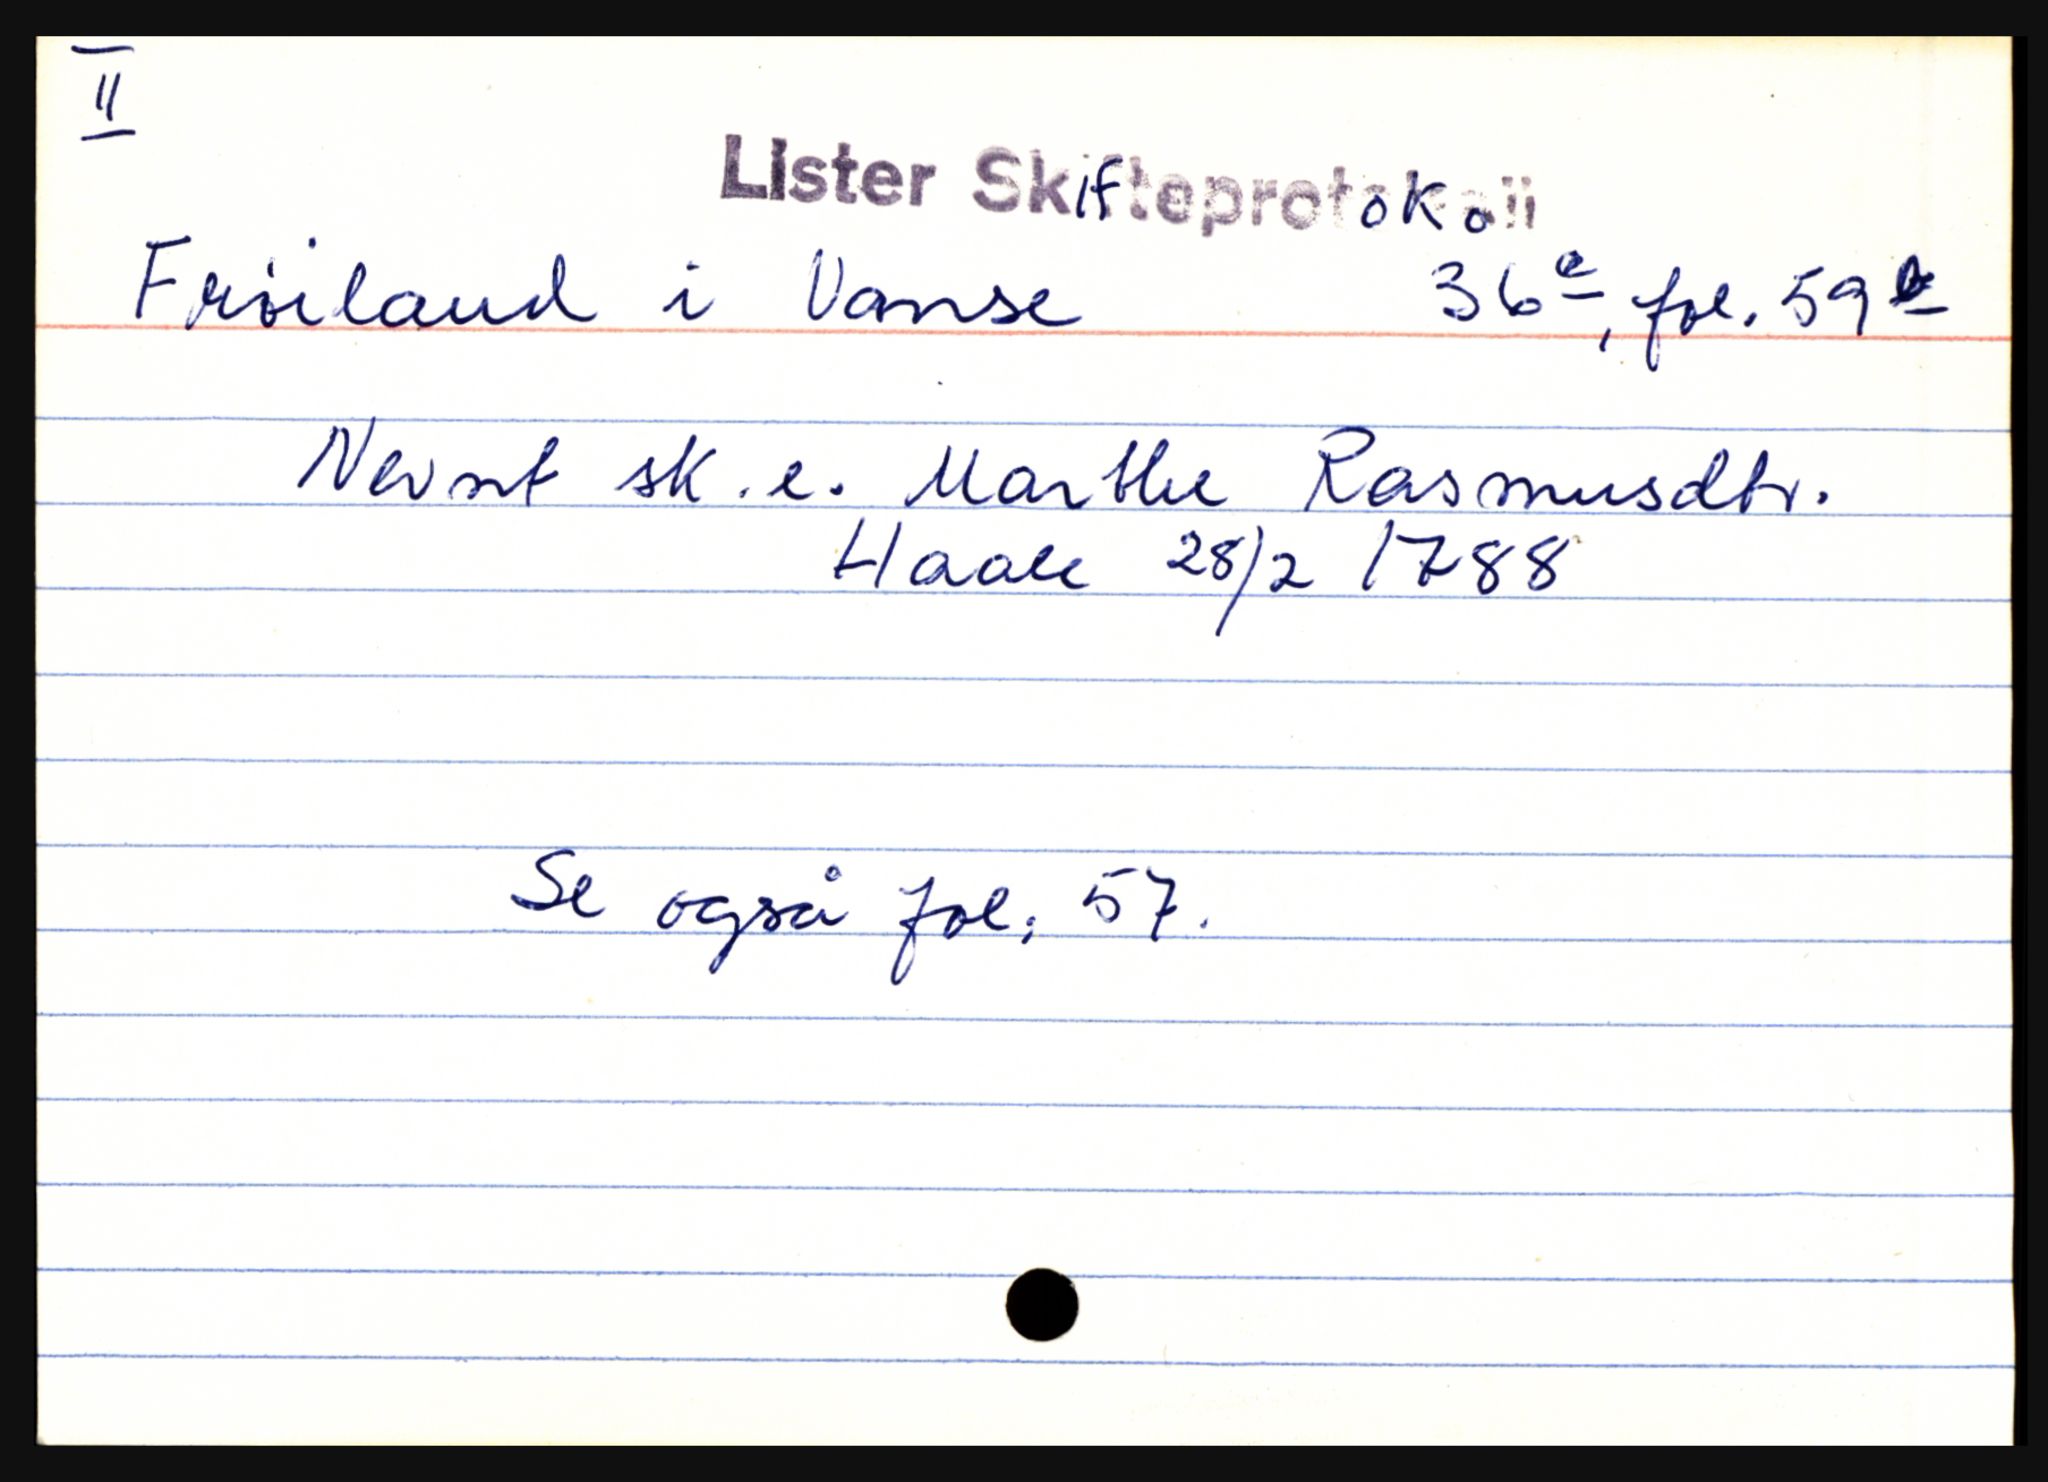 II
Lister Skifteprotokoll
Frøiland i Vanse 36a, fol. 59b
Nevnt sk. e. Marthe Rasmusdtr.
Haale 28/2 1788
Se også fol. 57.